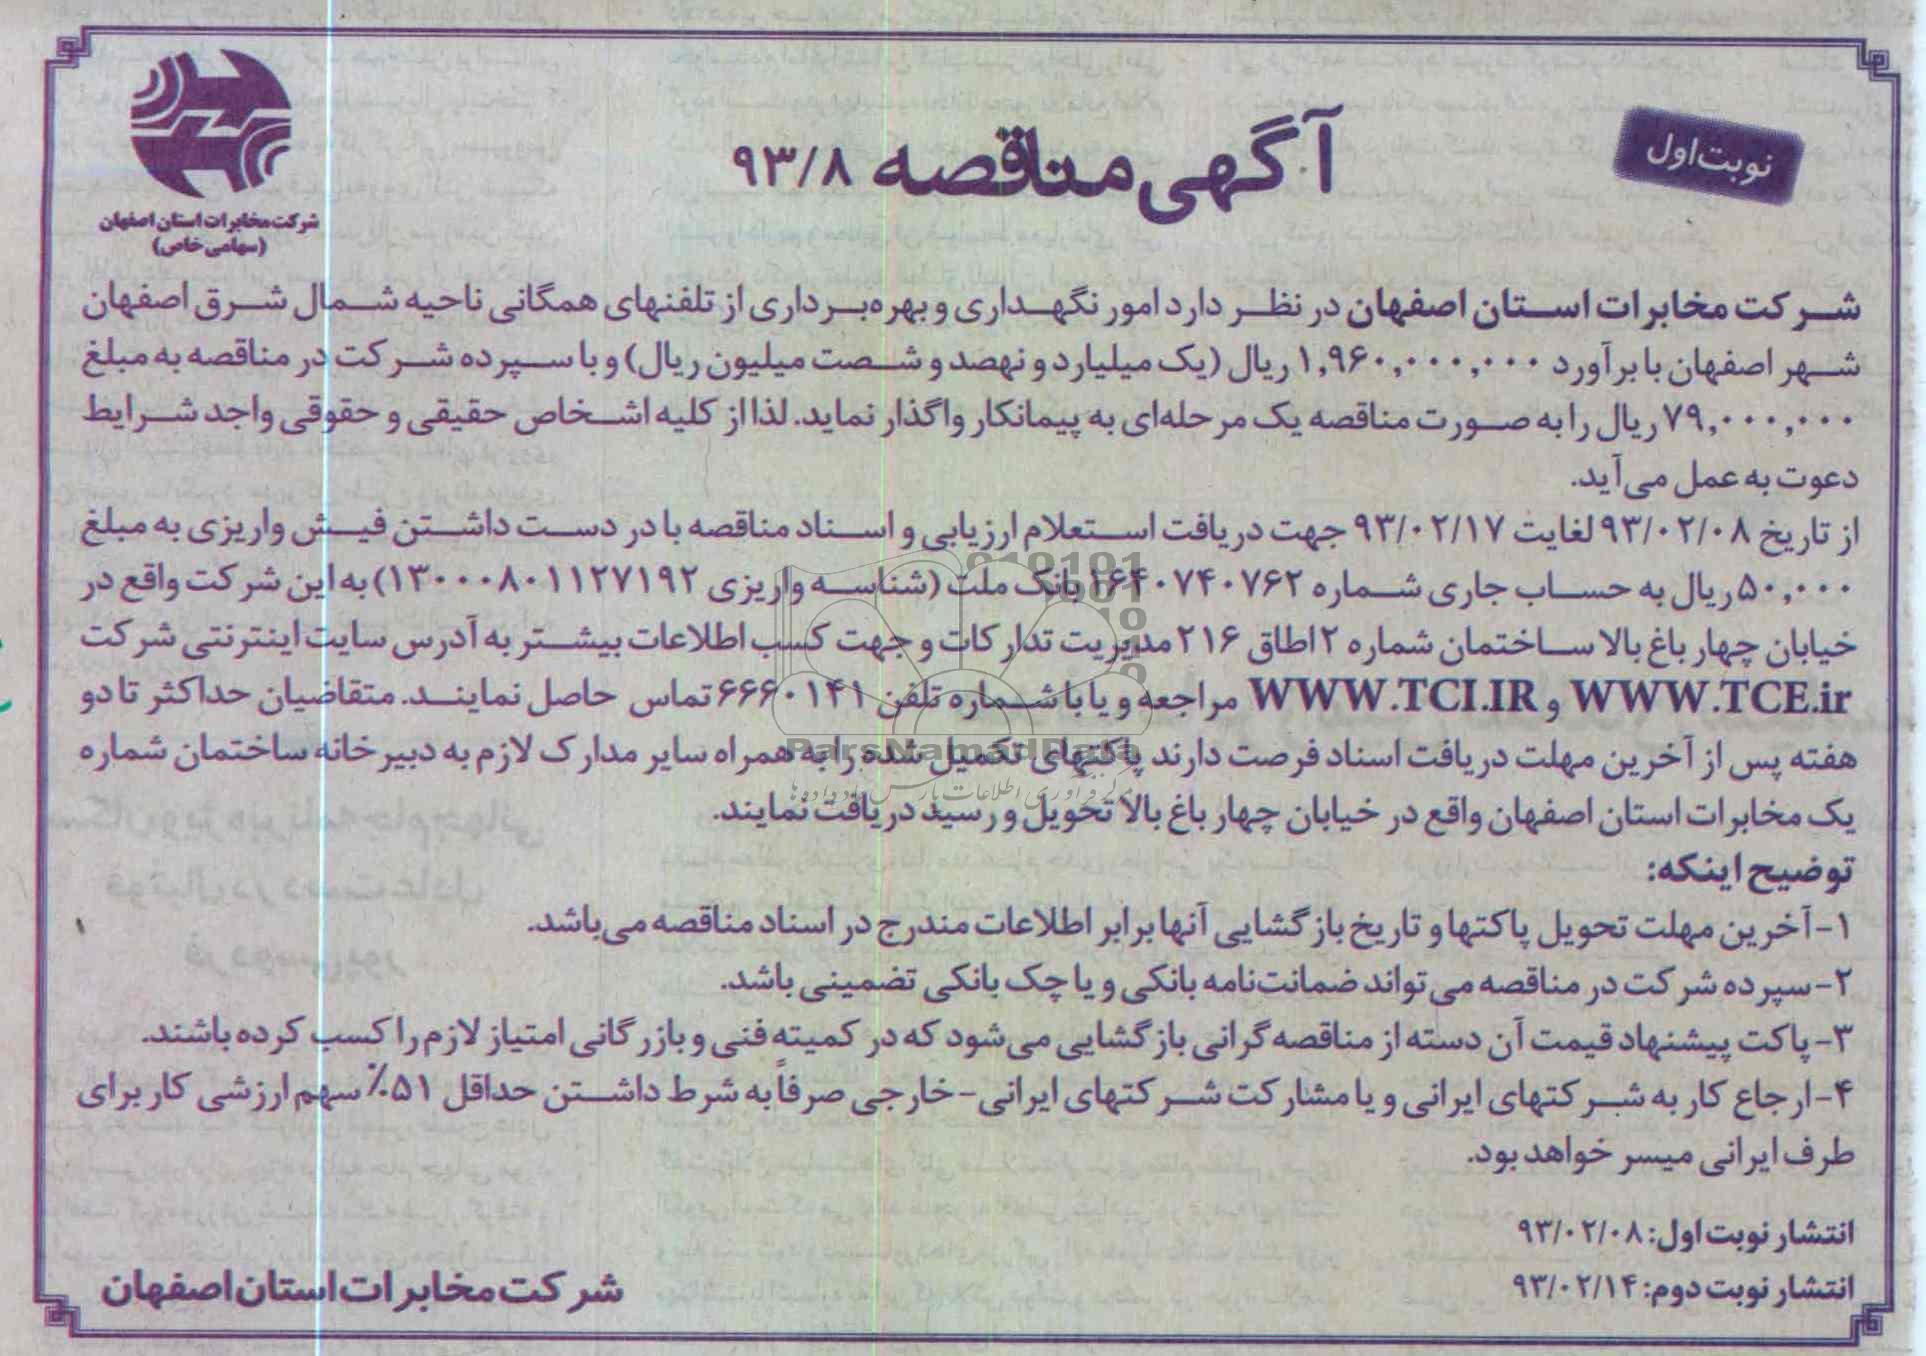 نوبت اول
آگهی مناقصه ۹۳/۸
شرکت مخابرات استان اصفهان
(سهامی خاص)
شرکت مخابرات استان اصفهان در نظر دارد امور نگهداری و بهره‌برداری از تلفنهای همگانی ناحیه شمال شرق اصفهان
شهر اصفهان با برآورد ۱,۹۶۰,۰۰۰,۰۰۰ ریال (یک میلیارد و نهصد و شصت میلیون ریال) و با سپرده شرکت در مناقصه به مبلغ
۷۹,۰۰۰,۰۰۰ ریال را به صورت مناقصه یک مرحله‌ای به پیمانکار واگذار نماید. لذا از کلیه اشخاص حقیقی و حقوقی واجد شرایط
دعوت به عمل می‌آید.
از تاریخ ۹۳/۰۲/۰۸ لغایت ۹۳/۰۲/۱۷ جهت دریافت استعلام ارزیابی و اسناد مناقصه با در دست داشتن فیش واریزی به مبلغ
۵۰,۰۰۰ ریال به حساب جاری شماره ۱۶۴۰۷۴۰۷۶۲ بانک ملت (شناسه واریزی ۱۳۰۰۰۸۰۱۱۲۷۱۹۲) به این شرکت واقع در
خیابان چهار باغ بالا ساختمان شماره ۲ اطاق ۲۱۶ مدیریت تدارکات و جهت کسب اطلاعات بیشتر به آدرس سایت اینترنتی شرکت
WWW.TCE.ir و WWW.TCI.IR مراجعه و یا با شماره تلفن ۶۶۶۰۱۴۱ تماس حاصل نمایند. متقاضیان حداکثر تا دو
هفته پس از آخرین مهلت دریافت اسناد فرصت دارند پاکتهای تکمیل شده را به همراه سایر مدارک لازم به دبیرخانه ساختمان شماره
یک مخابرات استان اصفهان واقع در خیابان چهار باغ بالا تحویل و رسید دریافت نمایند.
توضیح اینکه:
۱- آخرین مهلت تحویل پاکتها و تاریخ بازگشایی آنها برابر اطلاعات مندرج در اسناد مناقصه می‌باشد.
۲- سپرده شرکت در مناقصه می‌تواند ضمانت‌نامه بانکی و یا چک بانکی تضمینی باشد.
۳- پاکت پیشنهاد قیمت آن دسته از مناقصه‌گرانی بازگشایی می‌شود که در کمیته فنی و بازرگانی امتیاز لازم را کسب کرده باشند.
۴- ارجاع کار به شرکتهای ایرانی و یا مشارکت شرکتهای ایرانی- خارجی صرفاً به شرط داشتن حداقل ۵۱٪ سهم ارزشی کار برای
طرف ایرانی میسر خواهد بود.
انتشار نوبت اول: ۹۳/۰۲/۰۸
انتشار نوبت دوم: ۹۳/۰۲/۱۴
شرکت مخابرات استان اصفهان
ParsNamadData
مرکز فرآوری اطلاعات پارس نماد داده‌ها